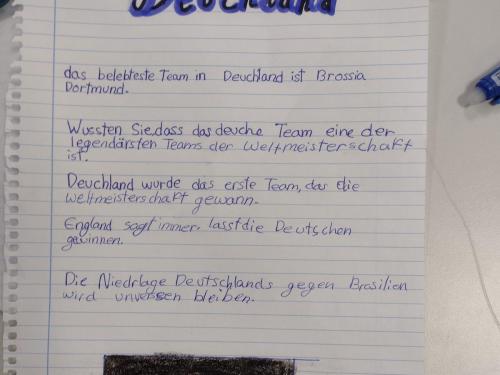 Deuchland
das belebteste Team in Deuchland ist Brossia
Dortmund.
Wussten Sie,dass das deuche Team eine der
legendärsten Teams der Weltmeisterschaft
ist.
Deuchland wurde das erste Team, das die
weltmeisterschaft gewann.
England sagt immer, lasst die Deutschen
gewinnen.
Die Niedrlage Deutschlands gegen Brasilien
wird unversen bleiben.